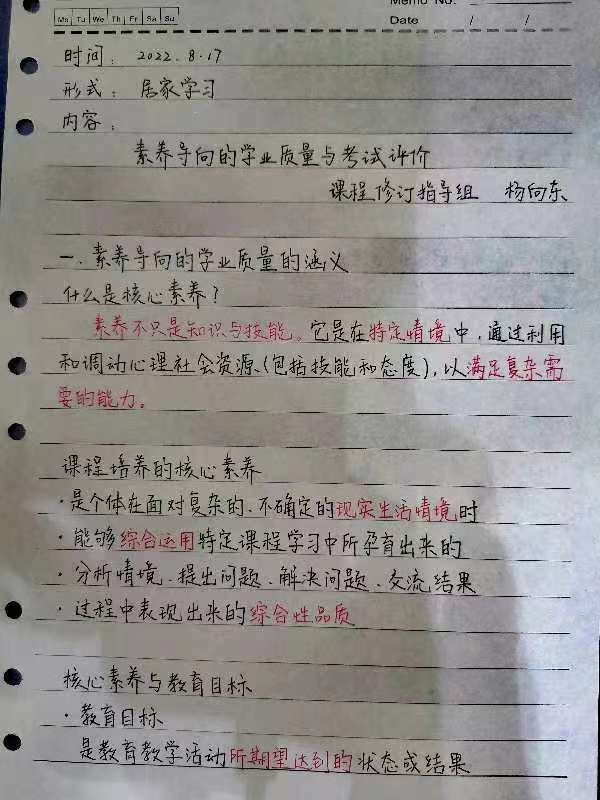 Memo No.
Mo Tu We Th Fr Sa Su
Date / /
时间： 2022.8.17
形式：居家学习
内容：
素养导向的学业质量与考试评价
课程修订指导组 杨向东
一.素养导向的学业质量的涵义
什么是核心素养？
素养不只是知识与技能。它是在特定情境中，通过利用
和调动心理社会资源(包括技能和态度)，以满足复杂需
要的能力。
课程培养的核心素养
·是个体在面对复杂的、不确定的现实生活情境时
·能够综合运用特定课程学习中所孕育出来的
·分析情境、提出问题、解决问题、交流结果
·过程中表现出来的综合性品质
核心素养与教育目标
·教育目标
是教育教学活动所期望达到的状态或结果